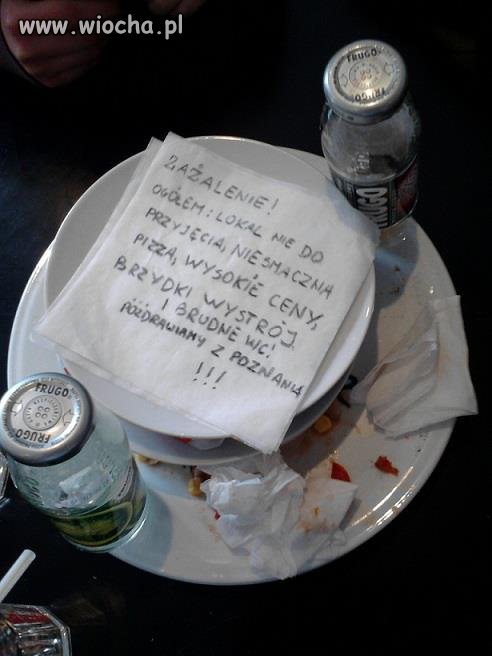 www.wiocha.pl
ZAŻALENIE!
OGÓŁEM: LOKAL NIE DO
PRZYJĘCIA, NIESMACZNA
PIZZA, WYSOKIE CENY,
BRZYDKI WYSTRÓJ
I BRUDNE WC!
POZDRAWIAMY Z POZNANIA
!!!
FRUGO
FRUGO
FRUGO
FRUGO